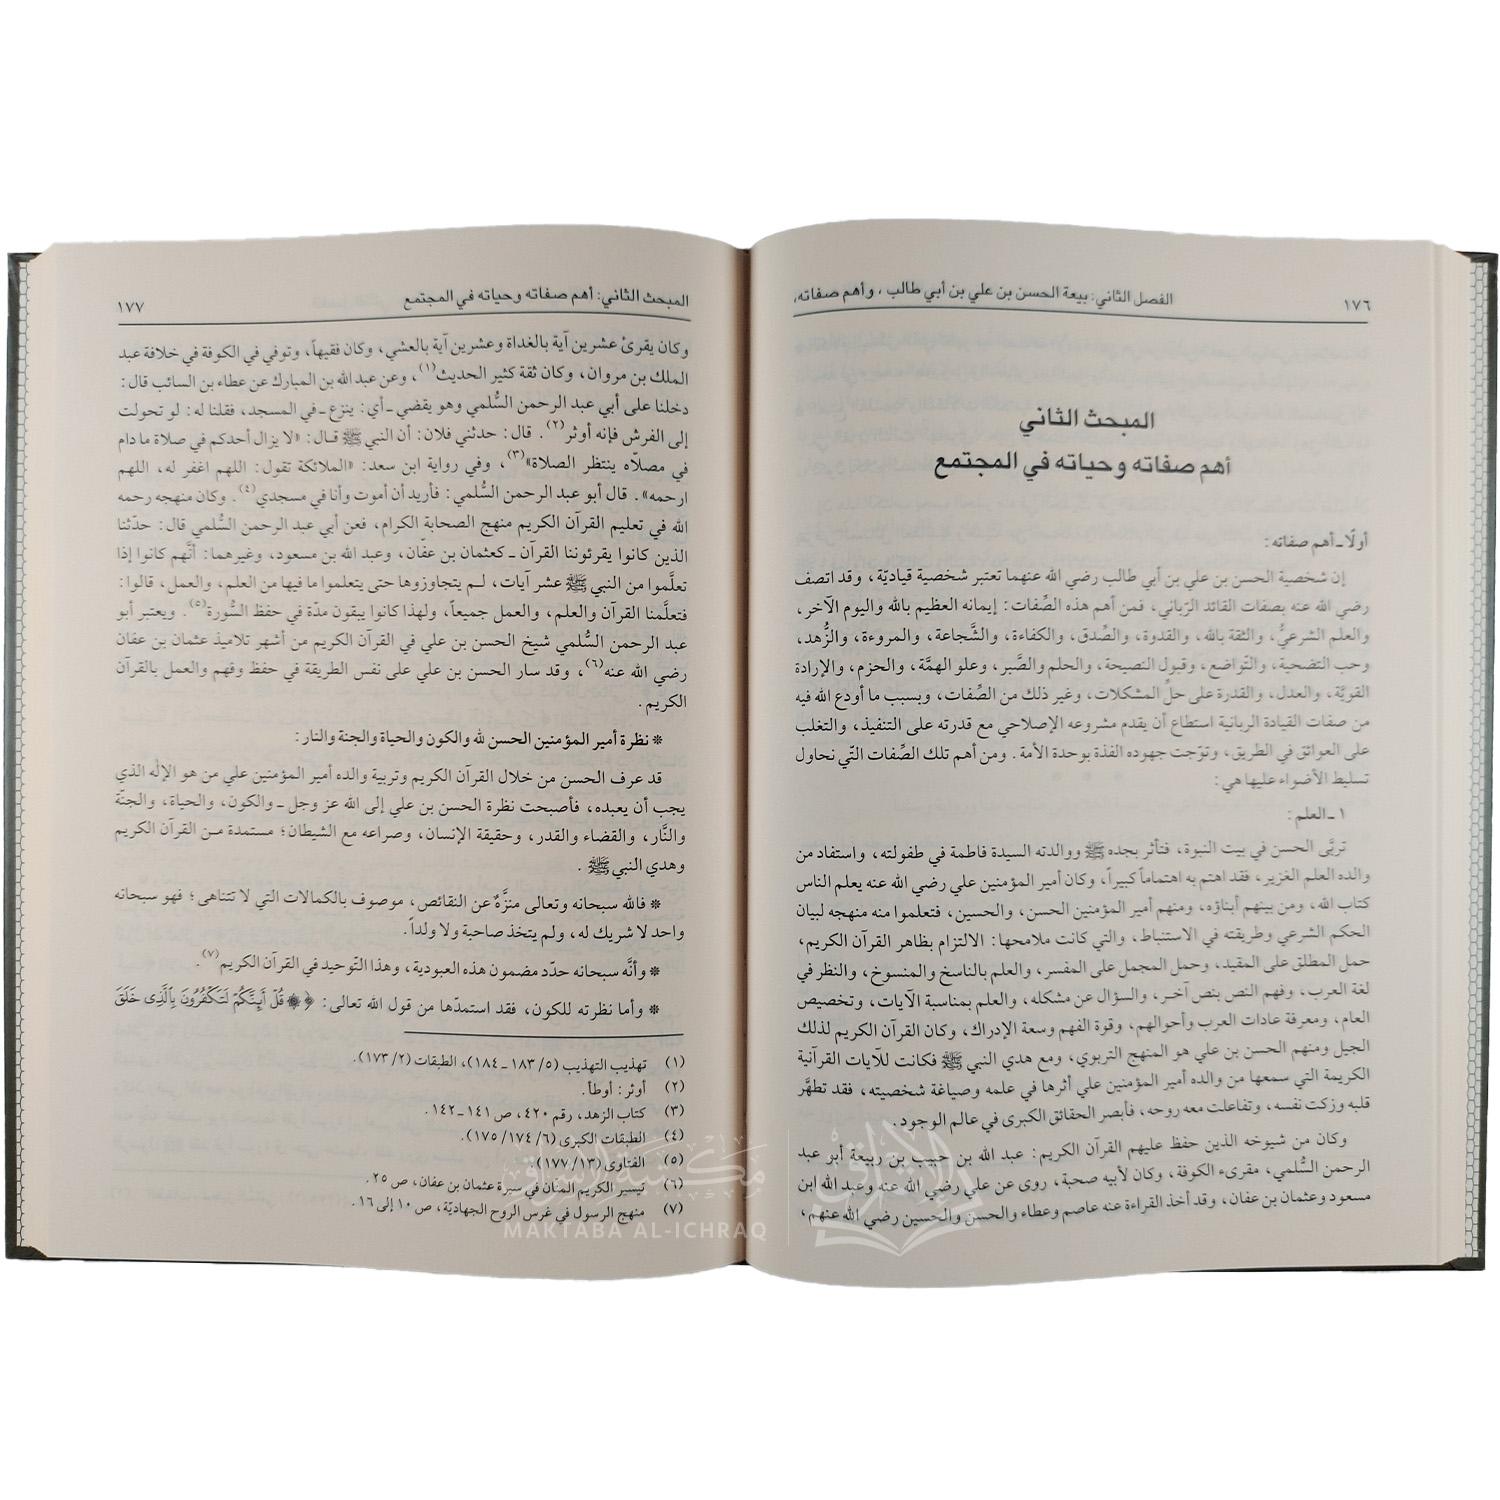 ١٧٦ الفصل الثاني: بيعة الحسن بن علي بن أبي طالب، وأهم صفاته،
المبحث الثاني
أهم صفاته وحياته في المجتمع
أولًا ـ أهم صفاته:
إن شخصية الحسن بن علي بن أبي طالب رضي الله عنهما تعتبر شخصية قياديّة، وقد اتصف
رضي الله عنه بصفات القائد الرّباني، فمن أهم هذه الصِّفات: إيمانه العظيم بالله واليوم الآخر،
والعلم الشرعيُّ، والثقة بالله، والقدوة، والصِّدق، والكفاءة، والشَّجاعة، والمروءة، والزُّهد،
وحب التضحية، والتّواضع، وقبول النصيحة، والحلم والصَّبر، وعلو الهمَّة، والحزم، والإرادة
القويَّة، والعدل، والقدرة على حلِّ المشكلات، وغير ذلك من الصِّفات، وبسبب ما أودع الله فيه
من صفات القيادة الربانية استطاع أن يقدم مشروعه الإصلاحي مع قدرته على التنفيذ، والتغلب
على العوائق في الطريق، وتوّجت جهوده الفذة بوحدة الأمة. ومن أهم تلك الصِّفات التّي نحاول
تسليط الأضواء عليها هي:
١ ـ العلم:
تربَّى الحسن في بيت النبوة، فتأثر بجده ﷺ ووالدته السيدة فاطمة في طفولته، واستفاد من
والده العلم الغزير، فقد اهتم به اهتماماً كبيراً، وكان أمير المؤمنين علي رضي الله عنه يعلم الناس
كتاب الله، ومن بينهم أبناؤه، ومنهم أمير المؤمنين الحسن، والحسين، فتعلموا منه منهجه لبيان
الحكم الشرعي وطريقته في الاستنباط، والتي كانت ملامحها: الالتزام بظاهر القرآن الكريم،
حمل المطلق على المقيد، وحمل المجمل على المفسر، والعلم بالناسخ والمنسوخ، والنظر في
لغة العرب، وفهم النص بنص آخر، والسؤال عن مشكله، والعلم بمناسبة الآيات، وتخصيص
العام، ومعرفة عادات العرب وأحوالهم، وقوة الفهم وسعة الإدراك، وكان القرآن الكريم لذلك
الجيل ومنهم الحسن بن علي هو المنهج التربوي، ومع هدي النبي ﷺ فكانت للآيات القرآنية
الكريمة التي سمعها من والده أمير المؤمنين علي أثرها في علمه وصياغة شخصيته، فقد تطهَّر
قلبه وزكت نفسه، وتفاعلت معه روحه، فأبصر الحقائق الكبرى في عالم الوجود.
وكان من شيوخه الذين حفظ عليهم القرآن الكريم: عبد الله بن حبيب بن ربيعة أبو عبد
الرحمن السُّلمي، مقرىء الكوفة، وكان لأبيه صحبة، روى عن علي رضي الله عنه وعبد الله ابن
مسعود وعثمان بن عفان، وقد أخذ القراءة عنه عاصم وعطاء والحسن والحسين رضي الله عنهم،
المبحث الثاني: أهم صفاته وحياته في المجتمع ١٧٧
وكان يقرئ عشرين آية بالغداة وعشرين آية بالعشي، وكان فقيهاً، وتوفي في الكوفة في خلافة عبد
الملك بن مروان، وكان ثقة كثير الحديث(١)، وعن عبد الله بن المبارك عن عطاء بن السائب قال:
دخلنا على أبي عبد الرحمن السُّلمي وهو يقضي ـ أي: ينزع ـ في المسجد، فقلنا له: لو تحولت
إلى الفرش فإنه أوثر(٢). قال: حدثني فلان: أن النبي ﷺ قال: «لا يزال أحدكم في صلاة ما دام
في مصلاّه ينتظر الصلاة»(٣)، وفي رواية ابن سعد: «الملائكة تقول: اللهم اغفر له، اللهم
ارحمه». قال أبو عبد الرحمن السُّلمي: فأريد أن أموت وأنا في مسجدي(٤). وكان منهجه رحمه
الله في تعليم القرآن الكريم منهج الصحابة الكرام، فعن أبي عبد الرحمن السُّلمي قال: حدّثنا
الذين كانوا يقرئوننا القرآن ـ كعثمان بن عفّان، وعبد الله بن مسعود، وغيرهما: أنَّهم كانوا إذا
تعلَّموا من النبي ﷺ عشر آيات، لم يتجاوزوها حتى يتعلموا ما فيها من العلم، والعمل، قالوا:
فتعلَّمنا القرآن والعلم، والعمل جميعاً، ولهذا كانوا يبقون مدّة في حفظ السُّورة(٥). ويعتبر أبو
عبد الرحمن السُّلمي شيخ الحسن بن علي في القرآن الكريم من أشهر تلاميذ عثمان بن عفان
رضي الله عنه(٦)، وقد سار الحسن بن علي على نفس الطريقة في حفظ وفهم والعمل بالقرآن
الكريم.
* نظرة أمير المؤمنين الحسن لله والكون والحياة والجنة والنار:
قد عرف الحسن من خلال القرآن الكريم وتربية والده أمير المؤمنين علي من هو الإله الذي
يجب أن يعبده، فأصبحت نظرة الحسن بن علي إلى الله عز وجل ـ والكون، والحياة، والجنّة
والنَّار، والقضاء والقدر، وحقيقة الإنسان، وصراعه مع الشيطان؛ مستمدة من القرآن الكريم
وهدي النبي ﷺ.
* فالله سبحانه وتعالى منزَّهٌ عن النقائص، موصوف بالكمالات التي لا تتناهى؛ فهو سبحانه
واحد لا شريك له، ولم يتخذ صاحبة ولا ولداً.
* وأنَّه سبحانه حدّد مضمون هذه العبودية، وهذا التوحيد في القرآن الكريم(٧).
* وأما نظرته للكون، فقد استمدّها من قول الله تعالى: ﴿۞ قُلْ أَئِنَّكُمْ لَتَكْفُرُونَ بِالَّذِى خَلَقَ
(١) تهذيب التهذيب (٥/ ١٨٣ ـ ١٨٤)، الطبقات (٢/ ١٧٣).
(٢) أوثر: أوطأ.
(٣) كتاب الزهد، رقم ٤٢٠، ص ١٤١ ـ ١٤٢.
(٤) الطبقات الكبرى (٦/ ١٧٤/ ١٧٥).
(٥) الفتاوى (١٣/ ١٧٧).
(٦) تيسير الكريم المنان في سيرة عثمان بن عفان، ص ٢٥.
(٧) منهج الرسول في غرس الروح الجهاديّة، ص ١٠ إلى ١٦.
مكتبة الإشراق
MAKTABA AL-ICHRAQ
الإشراق